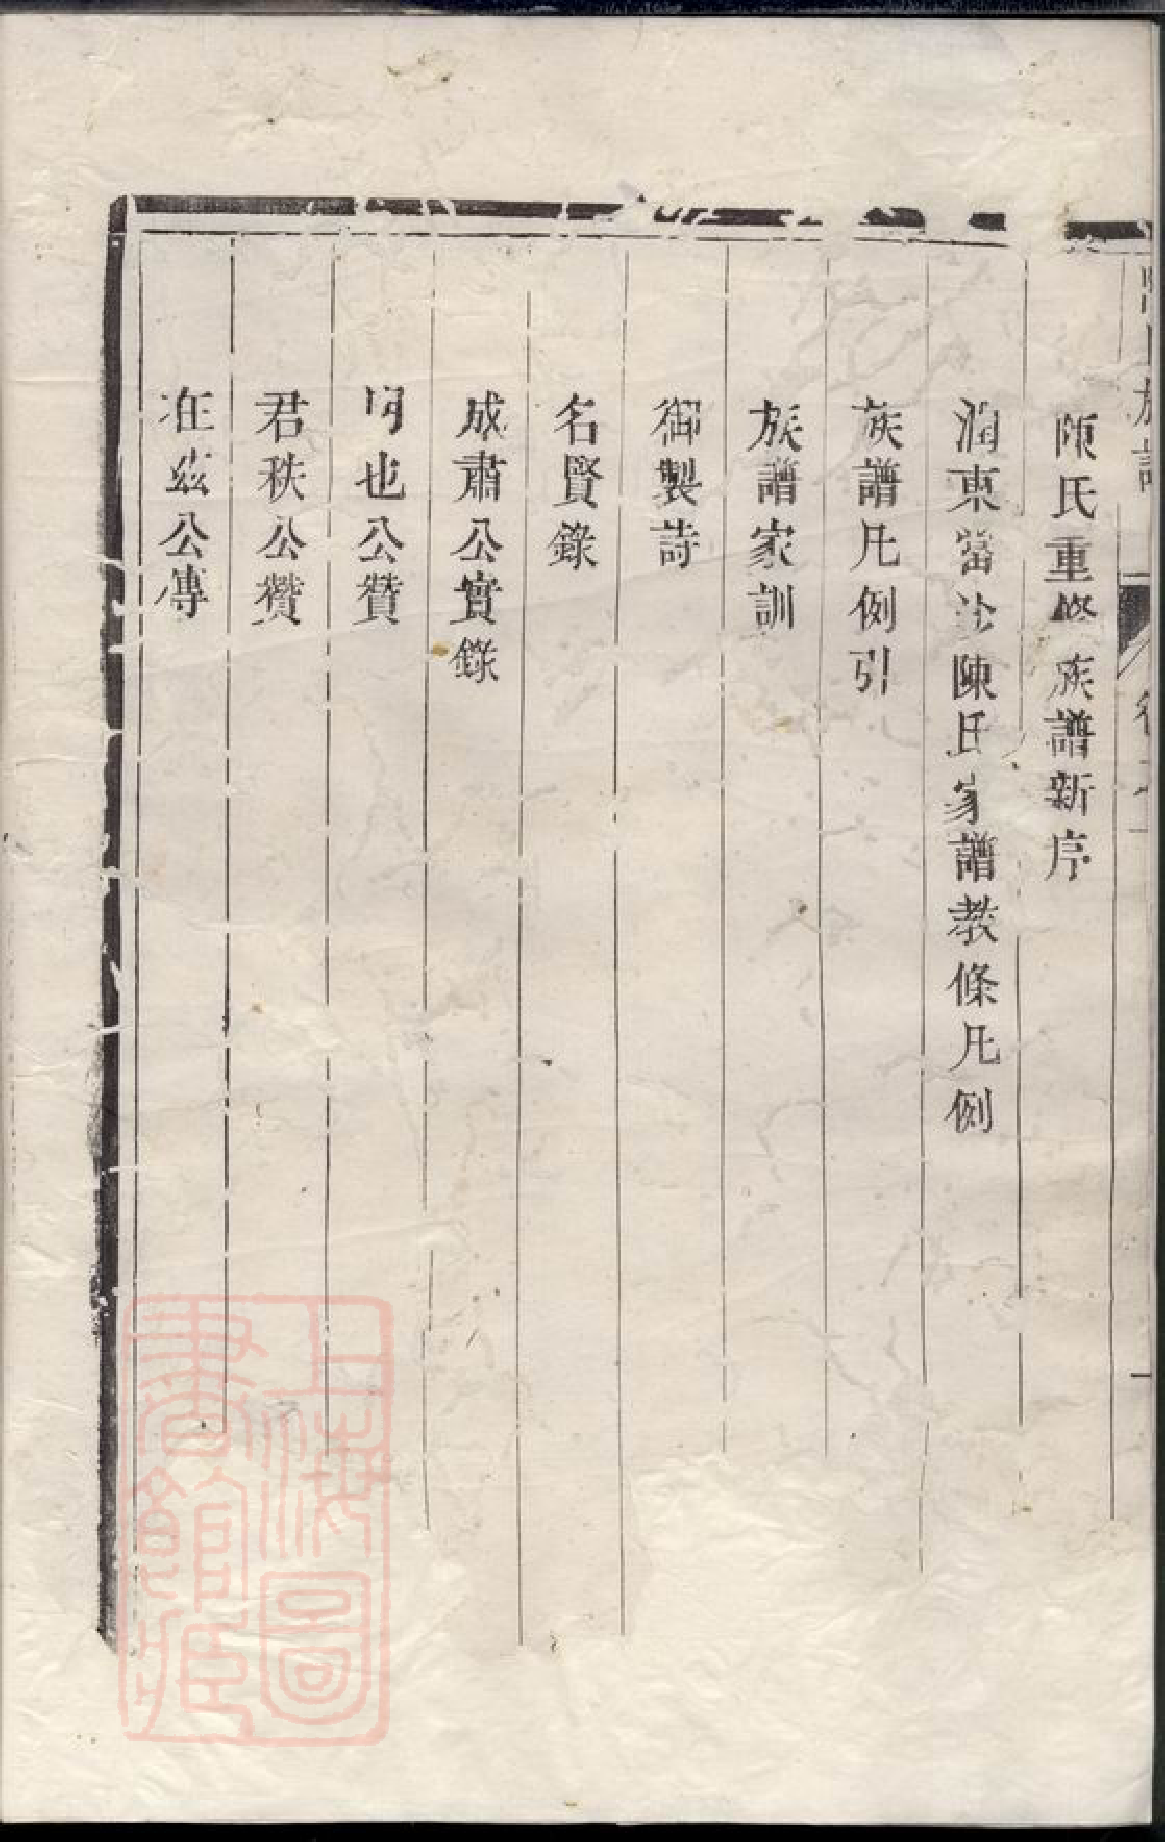 陳氏族譜
陳氏重修族譜新序
潤東當沙陳氏家譜教條凡例
族譜凡例引
族譜家訓
御製詩
名賢錄
成肅公實錄
何也公贊
君秩公贊
在茲公傳
上海圖書館藏